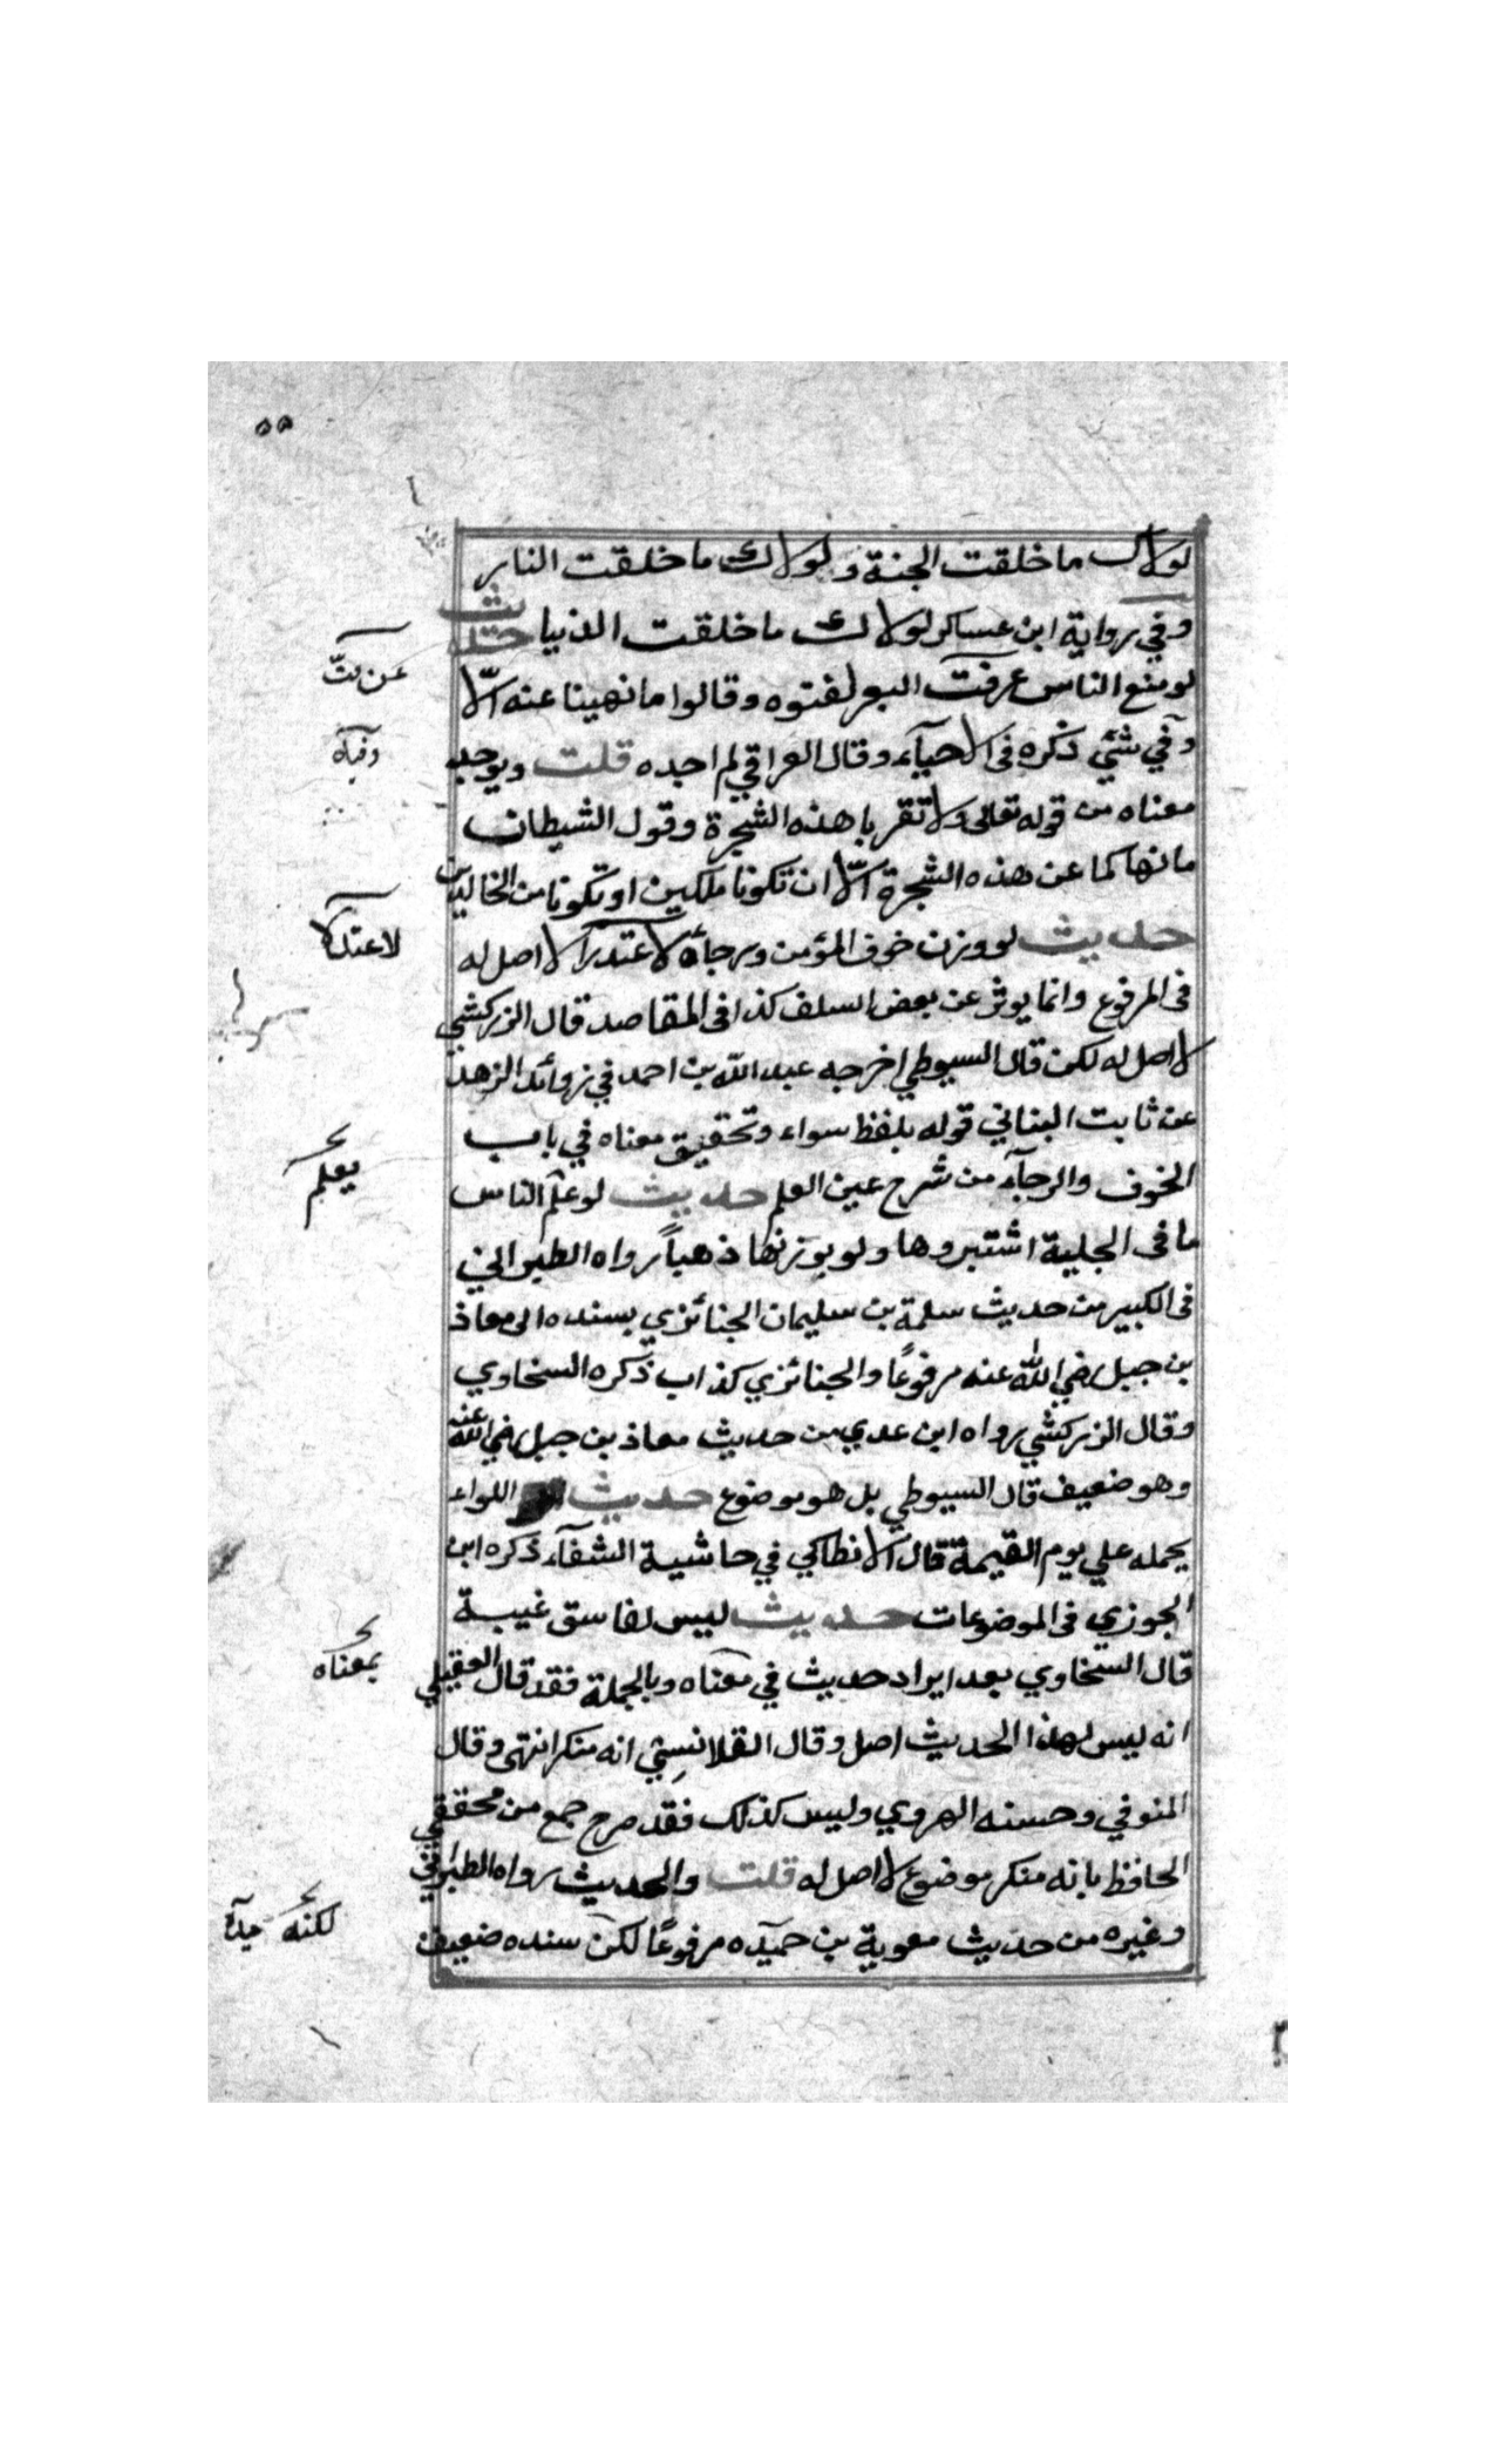 ٥٥
لولاك ما خلقت الجنة ولولاك ما خلقت النار
وفي رواية ابن عساكر لولاك ما خلقت الدنيا حديث
لو منع الناس عن فت البعر لفتوه وقالوا ما نهينا عنه الا
وفي شئي ذكره في الاحيآء وقال العراقي لم اجده قلت ويوجد
معناه من قوله تعالى ولا تقربا هذه الشجرة وقول الشيطان
ما نهاكما عن هذه الشجرة الّا ان تكونا ملكين او تكونا من الخالدين
حديث لو وزن خوف المؤمن ورجاؤه لاعتدلا لا اصل له
في المرفوع وانما يوثر عن بعض السلف كذا في المقاصد قال الزركشي
لا اصل له لكن قال السيوطي اخرجه عبد الله بن احمد في زوائد الزهد
عن ثابت البناني قوله بلفظ سواء وتحقيق معناه في باب
الخوف والرجآء من شرح عين العلم حديث لو علم الناس
ما في الحلبة اشتروها ولو بوزنها ذهباً رواه الطبراني
في الكبير من حديث سلمة بن سليمان الجنائزي بسنده الى معاذ
بن جبل رضي الله عنه مرفوعًا والجنائزي كذاب ذكره السخاوي
وقال الزركشي رواه ابن عدي من حديث معاذ بن جبل رضي الله عنه
وهو ضعيف قال السيوطي بل هو موضوع حديث اللواء
يحمله علي يوم القيمة قال الانطاكي في حاشية الشفآء ذكره ابن
الجوزي في الموضوعات حديث ليس لفاسق غيبة
قال السخاوي بعد ايراد حديث في معناه وبالجملة فقد قال العقيلي
انه ليس لهذا الحديث اصل وقال القلانسي انه منكر انتهى وقال
المنوفي وحسنه الهروي وليس كذلك فقد صرح جمع من محققي
الحافظ بانه منكر موضوع لا اصل له قلت والحديث رواه الطبراني
وغيره من حديث معوية بن حميده مرفوعًا لكن سنده ضعيف
عن فتّ
وفيه
لاعتدلا
يعلم
بمعناه
لكنه حيدة